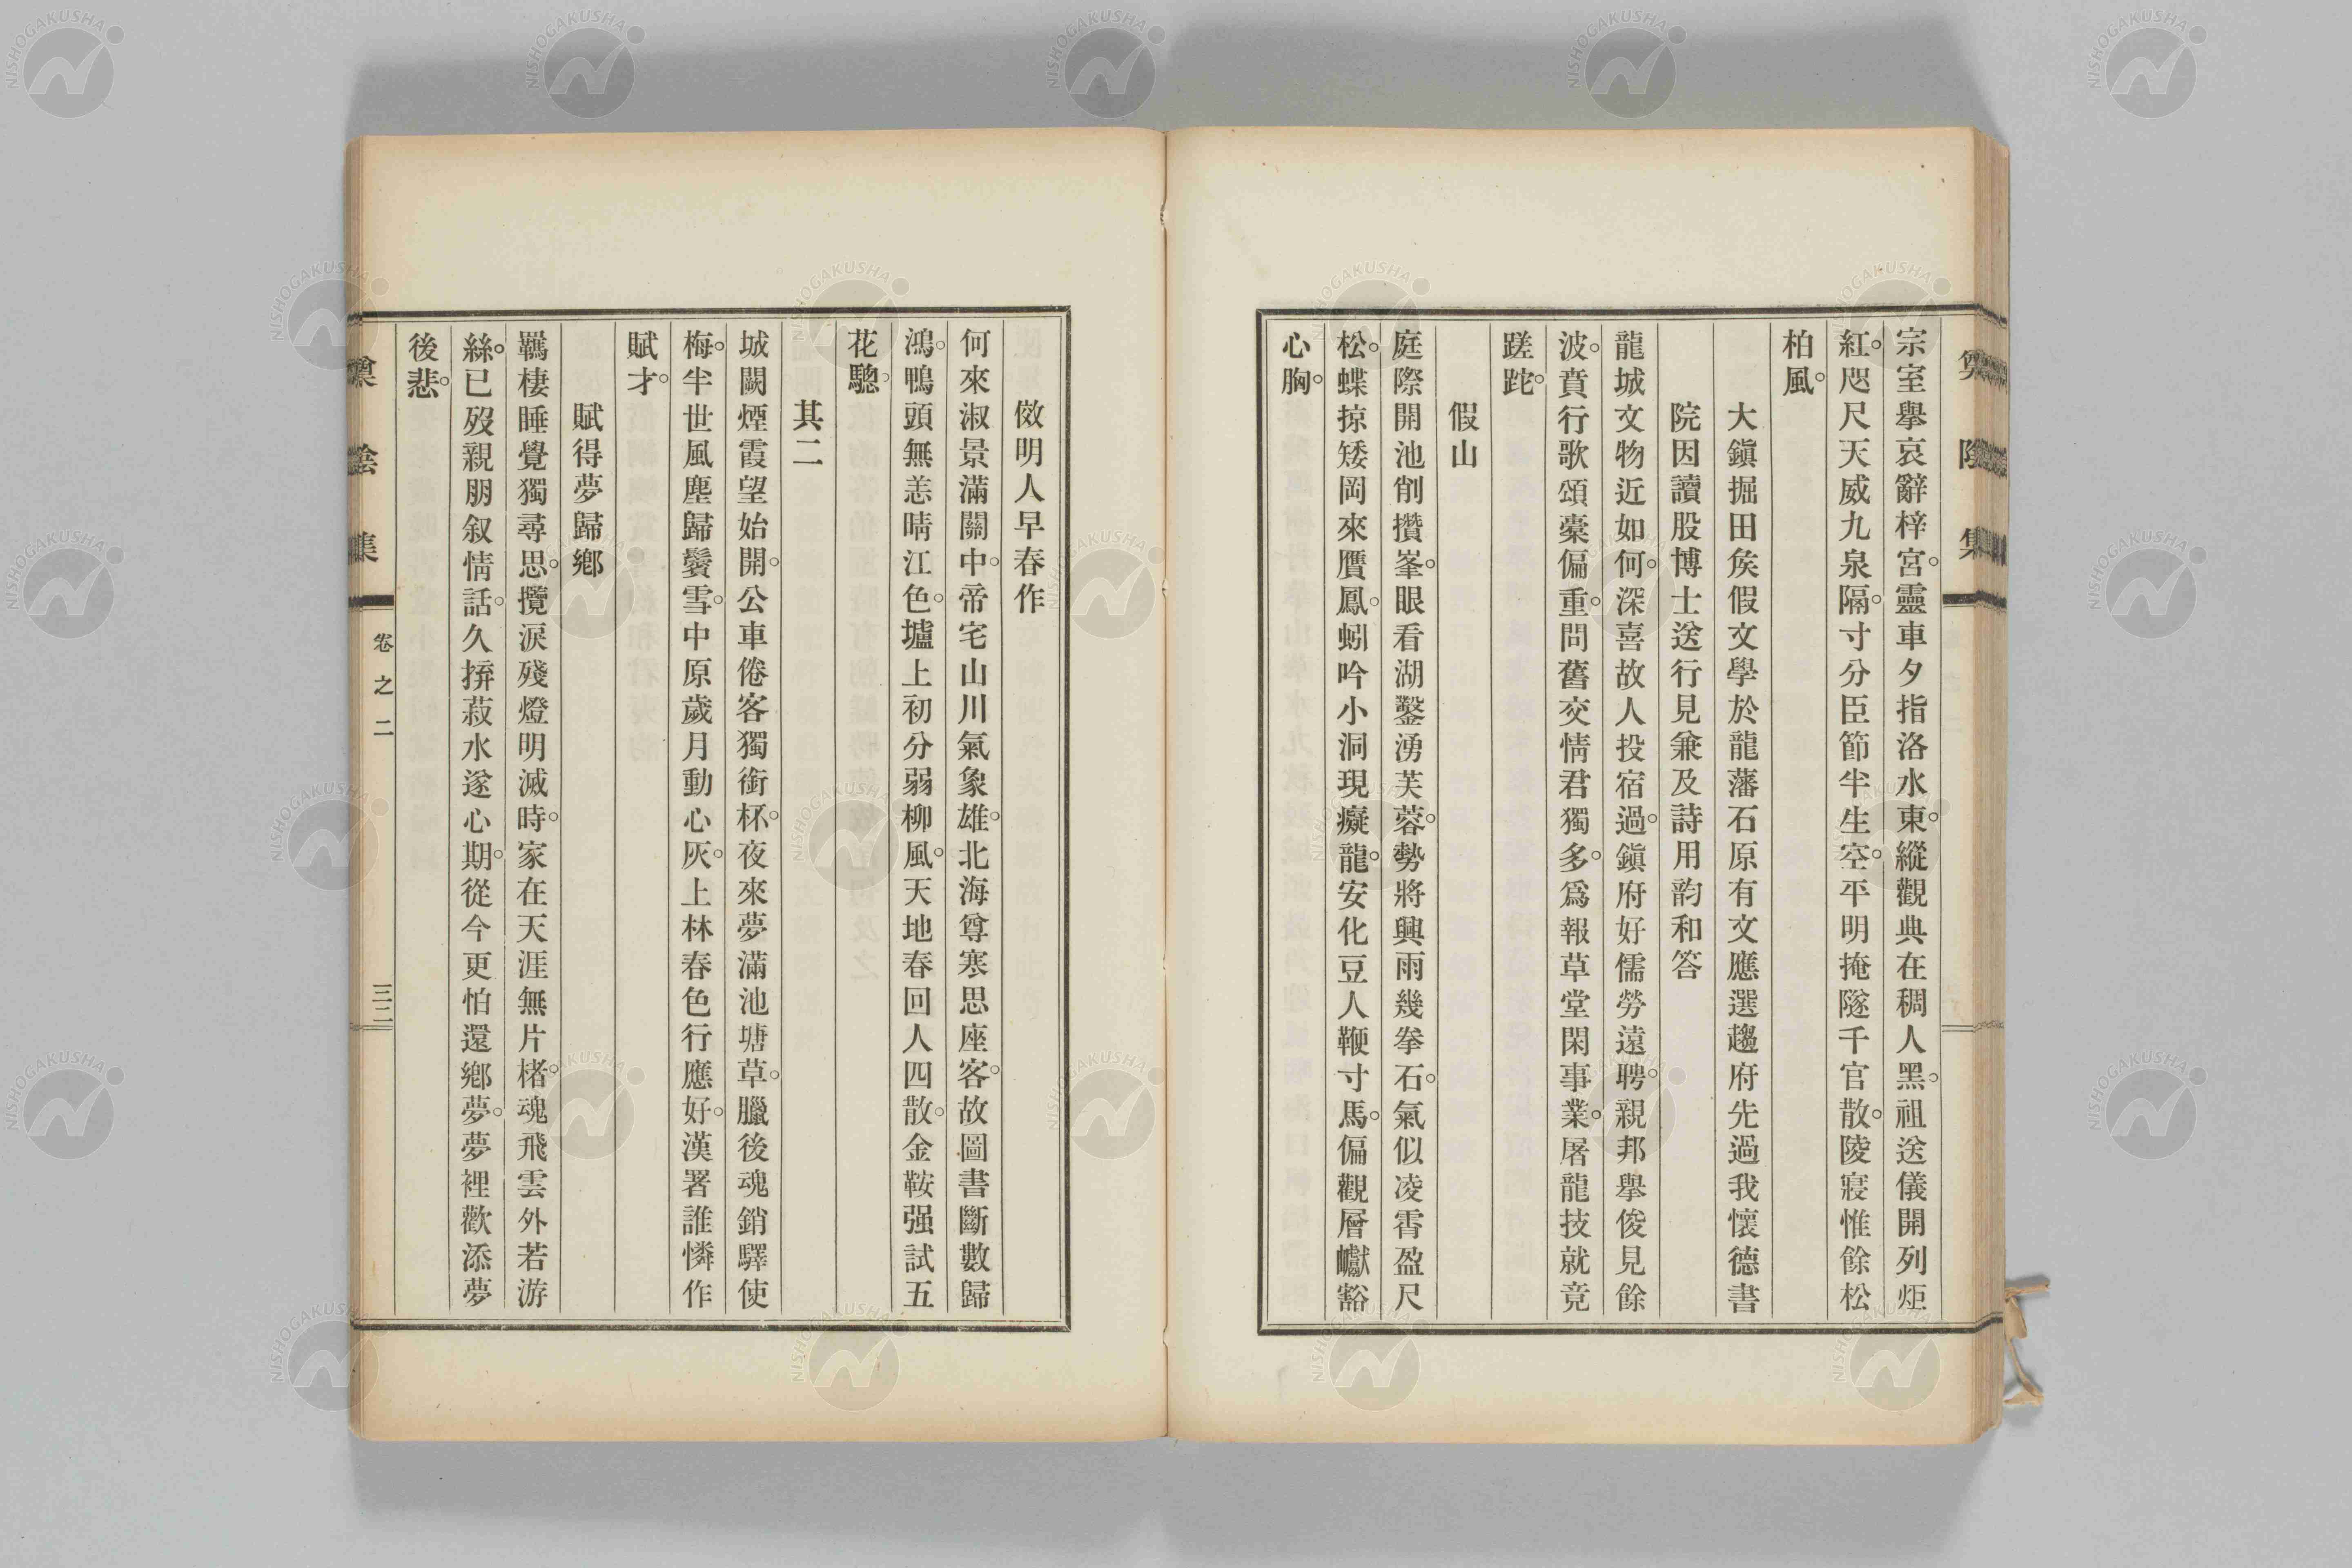 宗室擧哀辭梓宮。靈車夕指洛水東。縱觀典在稠人黑。祖送儀開列炬
紅。咫尺天威九泉隔。寸分臣節半生空。平明掩隧千官散。陵寢惟餘松
柏風。
大鎭掘田矦假文學於龍藩石原有文應選趨府先過我懷德書
院因讀股博士送行見兼及詩用韵和答
龍城文物近如何。深喜故人投宿過。鎭府好儒勞遠聘。親邦擧俊見餘
波。賁行歌頌橐偏重。問舊交情君獨多。爲報草堂閑事業。屠龍技就竟
蹉跎。
假山
庭際開池削攢峯。眼看湖鑿湧芙蓉。勢將興雨幾拳石。氣似凌霄盈尺
松。蝶掠矮岡來贋鳳。蚓吟小洞現癡龍。安化豆人鞭寸馬。偏觀層巘豁
心胸。
傚明人早春作
何來淑景滿關中。帝宅山川氣象雄。北海尊寒思座客。故圖書斷數歸
鴻。鴨頭無恙晴江色。壚上初分弱柳風。天地春回人四散。金鞍强試五
花驄。
其二
城闕煙霞望始開。公車倦客獨銜杯。夜來夢滿池塘草。臘後魂銷驛使
梅。半世風塵歸鬢雪。中原歲月動心灰。上林春色行應好。漢署誰憐作
賦才。
賦得夢歸鄕
羈棲睡覺獨尋思。攬淚殘燈明滅時。家在天涯無片楮。魂飛雲外若游
絲。已歿親朋叙情話。久拚菽水遂心期。從今更怕還鄕夢。夢裡歡添夢
後悲。
集
卷之二
三二